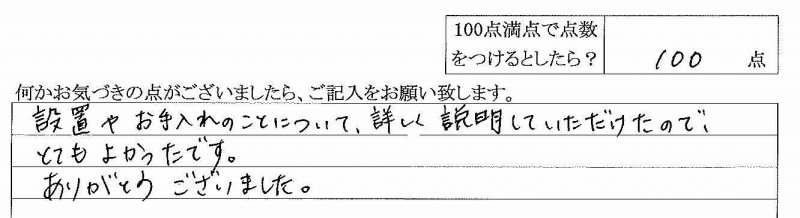 100点満点で点数
をつけるとしたら？ 100 点
何かお気づきの点がございましたら、ご記入をお願い致します。
設置や お手入れのことについて、詳しく 説明していただけたので、
とてもよかったです。
ありがとうございました。